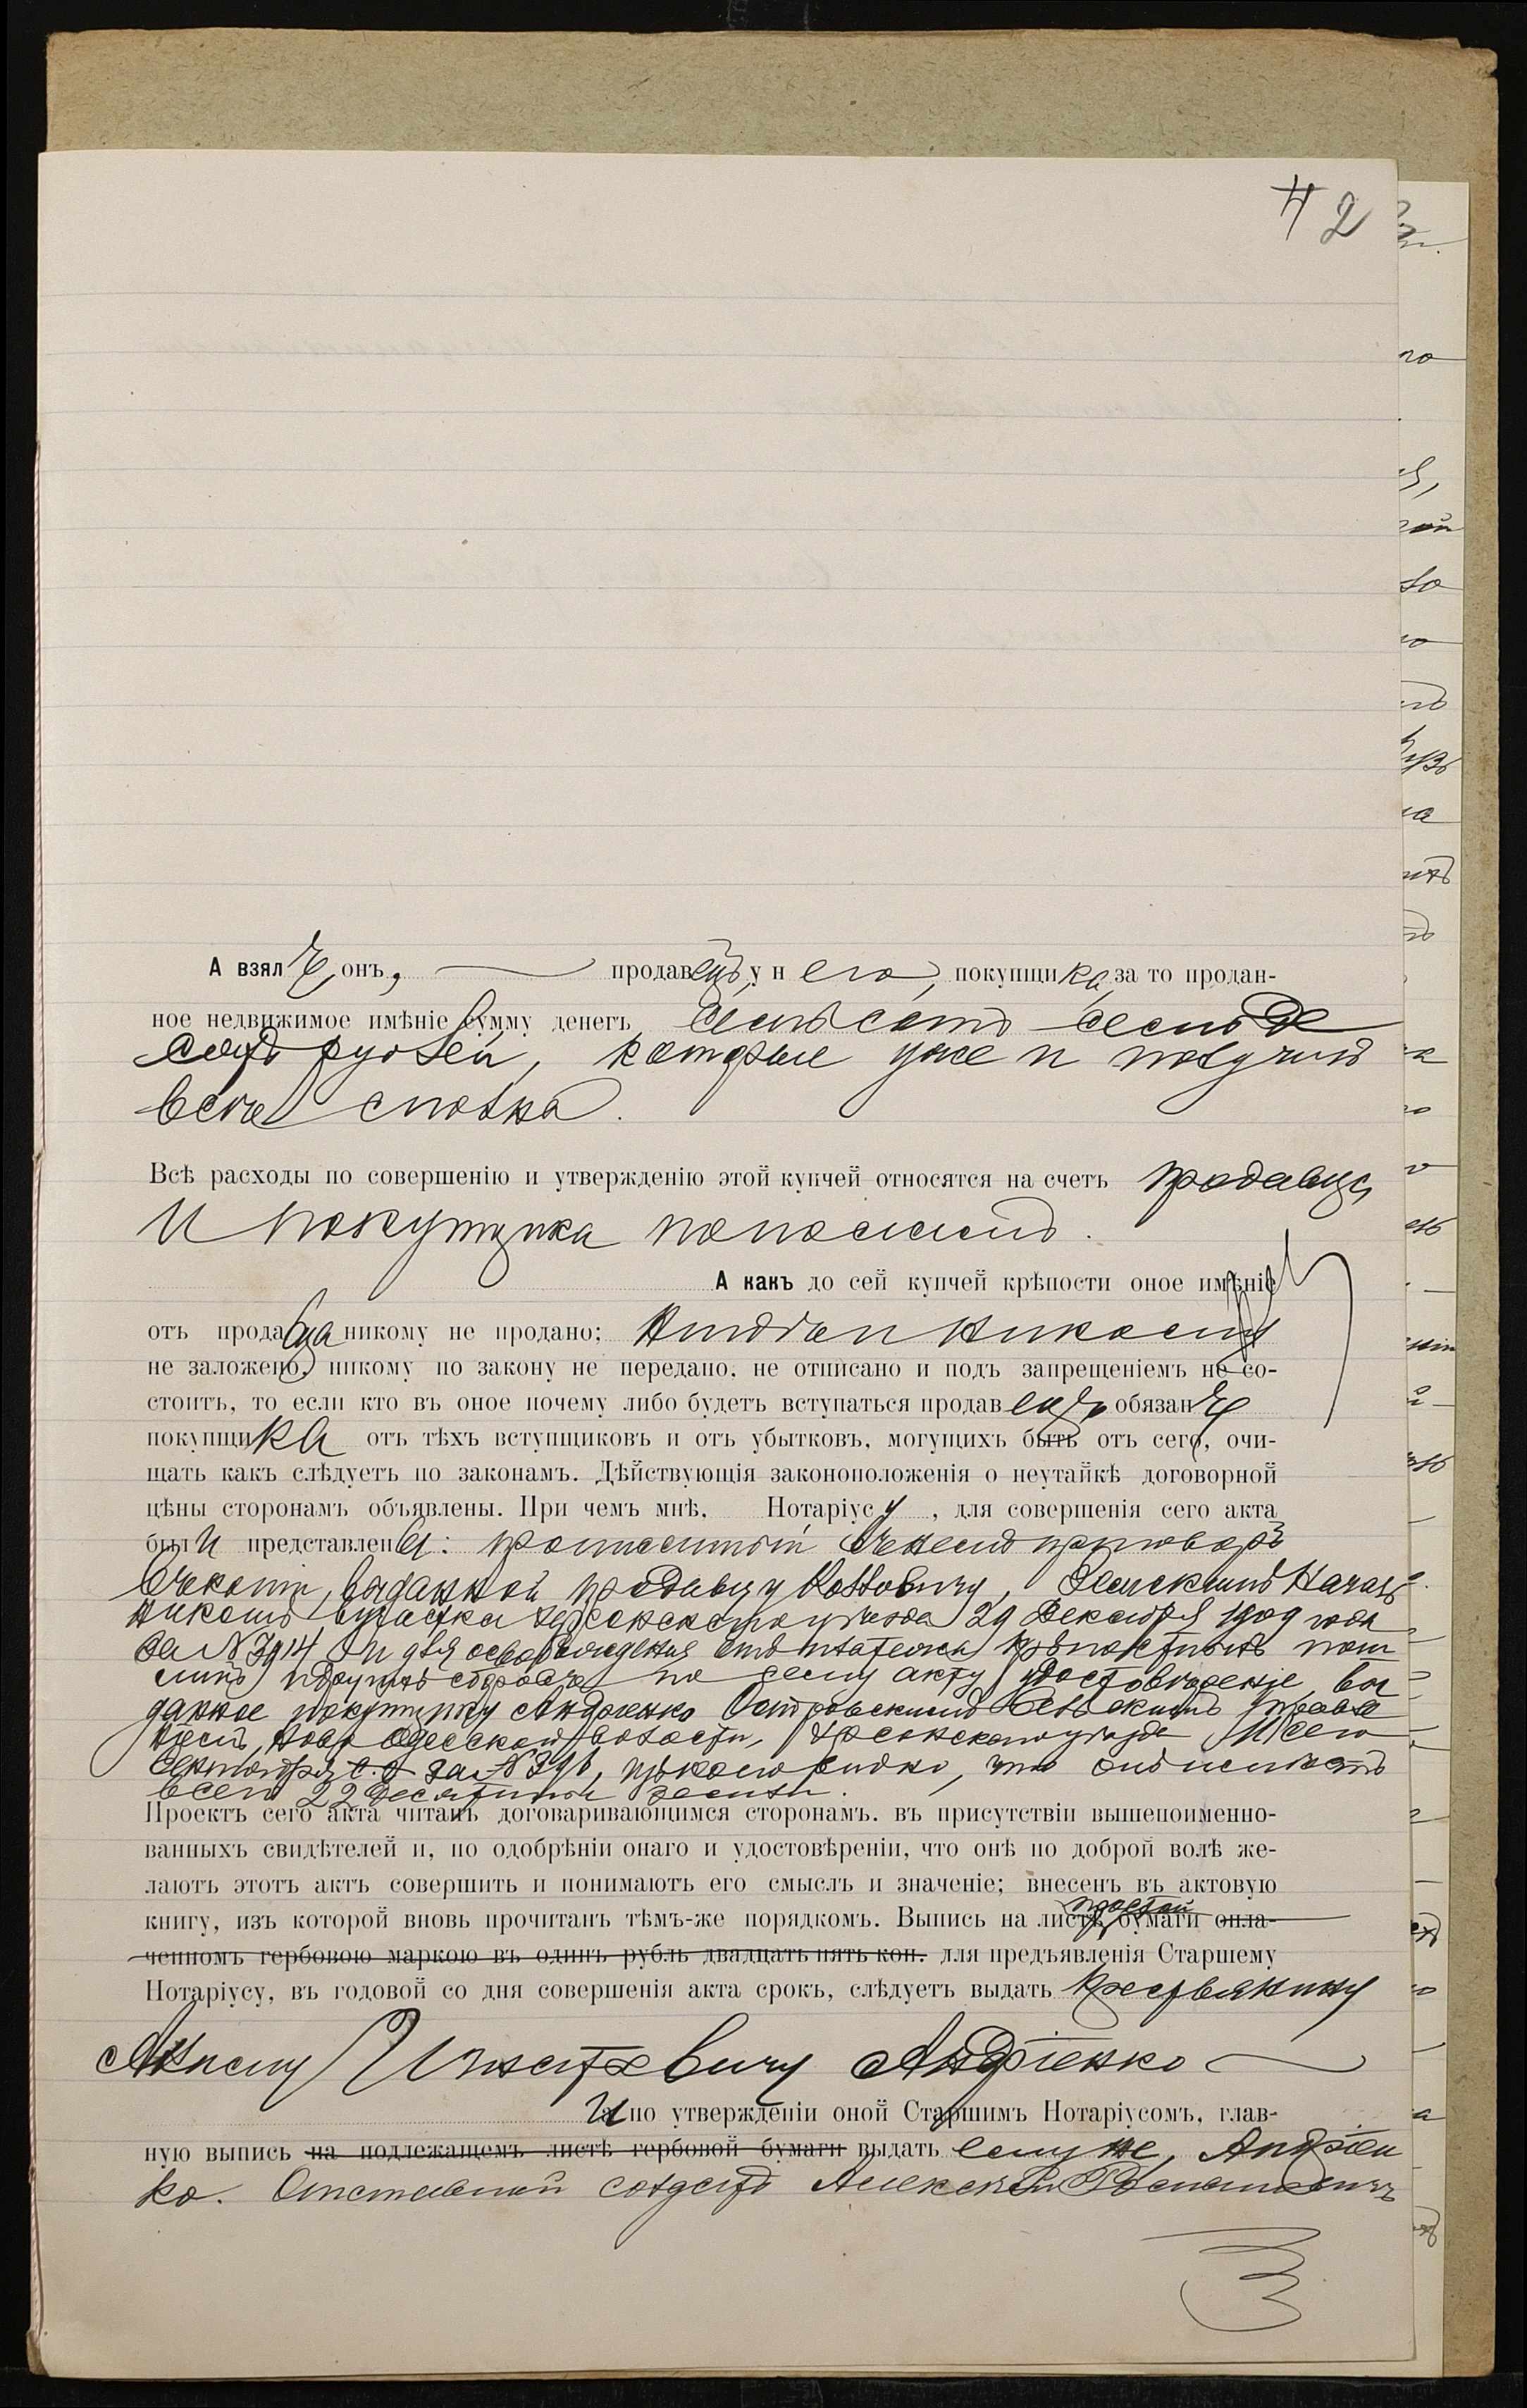 2
А взялъ онъ, продавецъ, у него, покупщика, за то продан-
ное недвижимое имѣніе сумму денегъ семьсотъ семьде
сятъ рублей, которые уже и получилъ
всѣ сполна.
Всѣ расходы по совершенію и утвержденію этой купчей относятся на счетъ продавца
и покупщика пополамъ.
А какъ до сей купчей крѣпости оное имѣніе
отъ продавца никому не продано; Андріан никому
не заложено, никому по закону не передано, не отписано и подъ запрещеніемъ не со-
стоитъ, то если кто въ оное почему либо будетъ вступаться продавецъ обязанъ
покупщика отъ тѣхъ вступщиковъ и отъ убытковъ, могущихъ быть отъ сего, очи-
щать какъ слѣдуетъ по законамъ. Дѣйствующія законоположенія о неутайкѣ договорной
цѣны сторонамъ объявлены. При чемъ мнѣ, Нотаріусу, для совершенія сего акта
были представлены: приговоръ
выданной продавцу Земскимъ Началь
никомъ участка Херсонскаго уѣзда 29 Декабря 1909 года
за № 3914 и для освобожденія отъ платежа крѣпостныхъ пош
линъ и другихъ сборовъ по сему акту удостовѣреніе, вы
данное покупщику Андріенко Островскимъ Сельскимъ Правле
ніемъ, Ново Одесской волости, Херсонскаго уѣзда сего
Сентября с. г. за № видно, что онъ имѣетъ
всего 22 десятины земли.
Проектъ сего акта читанъ договаривающимся сторонамъ, въ присутствіи вышепоименно-
ванныхъ свидѣтелей и, по одобрѣніи онаго и удостовѣреніи, что онѣ по доброй волѣ же-
лаютъ этотъ актъ совершить и понимаютъ его смыслъ и значеніе; внесенъ въ актовую
книгу, изъ которой вновь прочитанъ тѣмъ-же порядкомъ. Выпись на листѣ простой бумаги опла-
ченномъ гербовою маркою въ одинъ рубль двадцать пять коп. для предъявленія Старшему
Нотаріусу, въ годовой со дня совершенія акта срокъ, слѣдуетъ выдать крестьянину
Акиму Игнатьевичу Андріенко
и по утвержденіи оной Старшимъ Нотаріусомъ, глав-
ную выпись на подлежащемъ листѣ гербовой бумаги выдать ему же, Андріен
ко. Отставной солдатъ Алексѣй